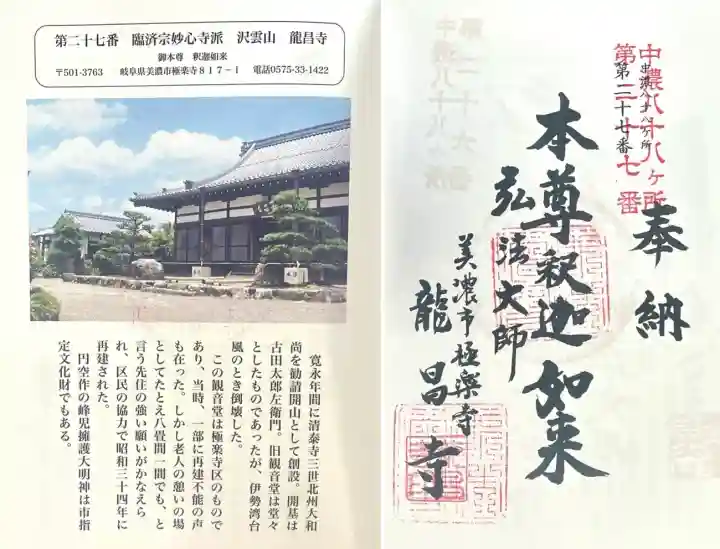 第二十七番 臨済宗妙心寺派 沢雲山 龍昌寺
御本尊 釈迦如来
〒501-3763 岐阜県美濃市極楽寺817-1 電話0575-33-1422
寛永年間に清泰寺三世北州大和
尚を勧請開山として創設。開基は
古田太郎左衛門。旧観音堂は堂々
としたものであったが、伊勢湾台
風のとき倒壊した。
この観音堂は極楽寺区のもので
あり、当時、一部に再建不能の声
も在った。しかし老人の憩いの場
としてたとえ八畳間一間でも、と
言う先住の強い願いがかなえら
れ、区民の協力で昭和三十四年に
再建された。
円空作の峰児擁護大明神は市指
定文化財でもある。
中濃八十八ヶ所
第二十七番
中濃八十八ヶ所
第二十七番
奉納
本尊釈迦如来
弘法大師
美濃市極楽寺
龍昌寺